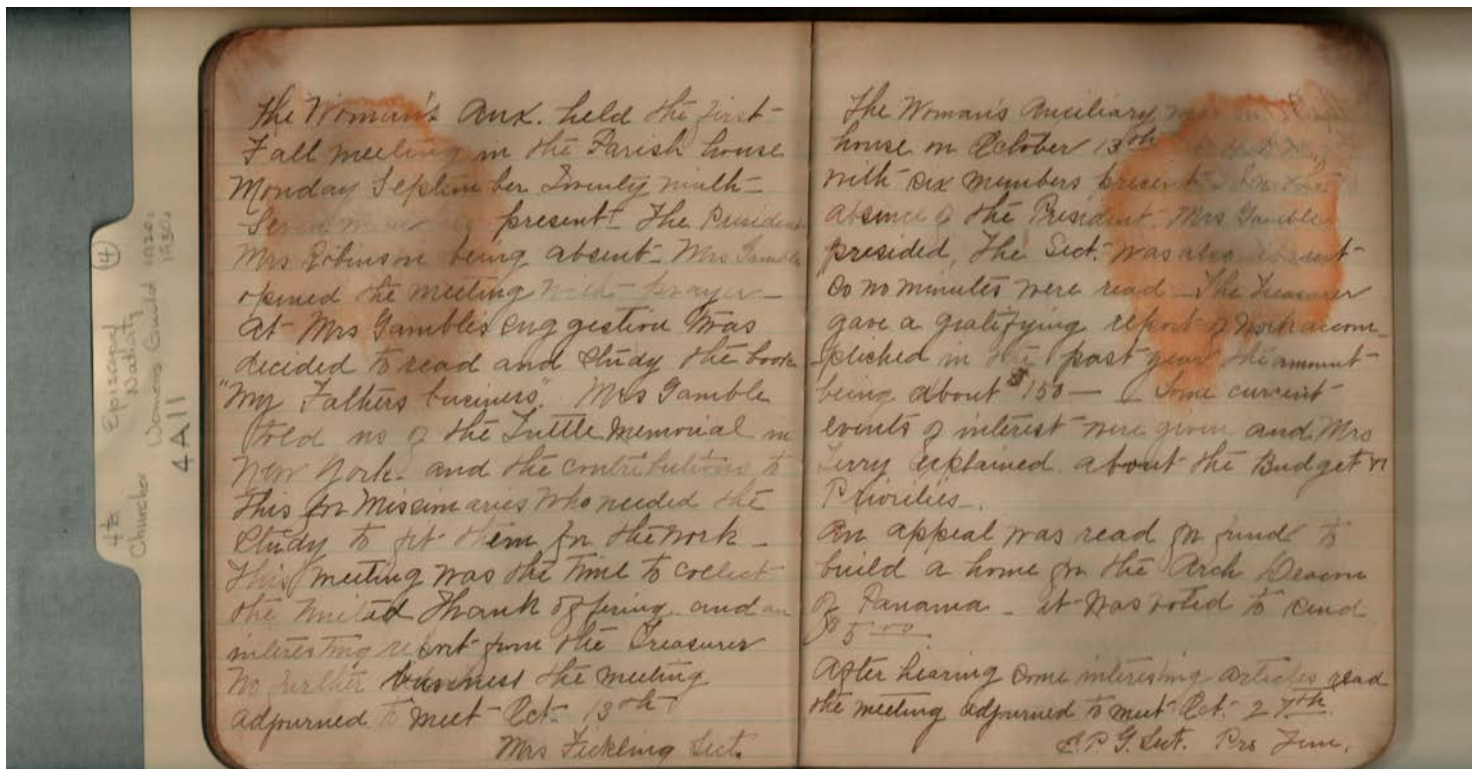 4½ Episcopal ④
Church
Womens Guild 1920s
1930s
4A11
The Woman's Aux. held the first
Fall meeting in the Parish house
Monday September Twenty ninth
Seven present. The President
Mrs Robinson being absent - Mrs Gamble
opened the meeting with prayer -
At Mrs Gamble's suggestion was
decided to read and study the book
"My Fathers business". Mrs Gamble
told us of the Tuttle Memorial in
New York. and the contributions to
this for Missionaries who needed the
study to fit them for the work -
This meeting was the time to collect
the United Thank offering and an
interesting report from the Treasurer
No further business the meeting
adjourned to meet Oct. 13th
Mrs Fickling Sect.
The Woman's Auciliary
house on October 13th
with six members present
absence of the President. Mrs Gamble
presided, The Sect. was also absent
so no minutes were read - The Treasurer
gave a gratifying report of work accom-
plished in the past year the amount
being about $150 — Some current
events of interest were given and Mrs
Terry explained about the Budget &
Priorities -.
An appeal was read for funds to
build a home for the Arch Deacon
of Panama - it was voted to send
$5.00
After hearing some interesting articles read
the meeting adjourned to meet Oct. 27th.
Sect. Pro Tem.